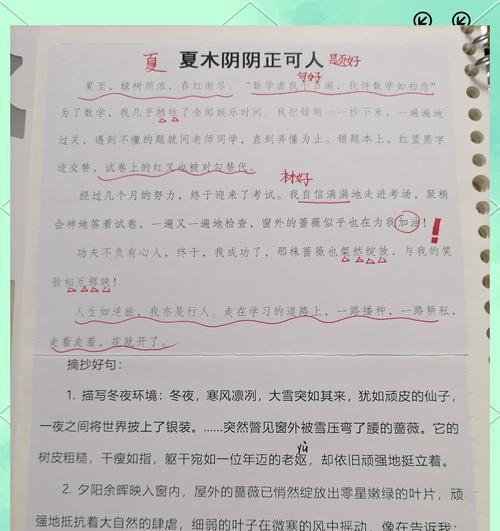 夏 夏木阴阴正可人 题好
夏至，绿树荫浓，春红谢尽。“数学虐我千百遍，我待数学如初恋”
句好
为了数学，我几乎牺牲了全部娱乐时间。我把错题一一抄下来，一遍遍地
过关，遇到不懂的题就问老师同学，直到弄懂为止。错题本上，红蓝黑字
迹交替，试卷上的红叉也被对勾替代。
林好
经过几个月的努力，终于迎来了考试。我自信满满地走进考场，聚精
会神地答着试卷，一遍又一遍地检查，窗外的蔷薇似乎也在为我加油！
功夫不负有心人，终于，我成功了，那株蔷薇也粲然绽放，与我的笑
脸相互辉映！
人生如逆旅，我亦是行人。走在学习的道路上，一路播种，一路耕耘，
走着走着，花就开了。
摘抄好句：
1. 描写冬夜环境：冬夜，寒风凛冽，大雪突如其来，犹如顽皮的仙子，
一夜之间将世界披上了银装。……突然瞥见窗外被雪压弯了腰的蔷薇。它的
yù
树皮粗糙，干瘦如指，躯干宛如一位年迈的老妪，却依旧顽强地挺立着。
2. 夕阳余晖映入窗内，屋外的蔷薇已悄然绽放出零星嫩绿的叶片，顽
强地抵抗着大自然的肆虐，细弱的叶子在微寒的风中摇动，像在告诉我：